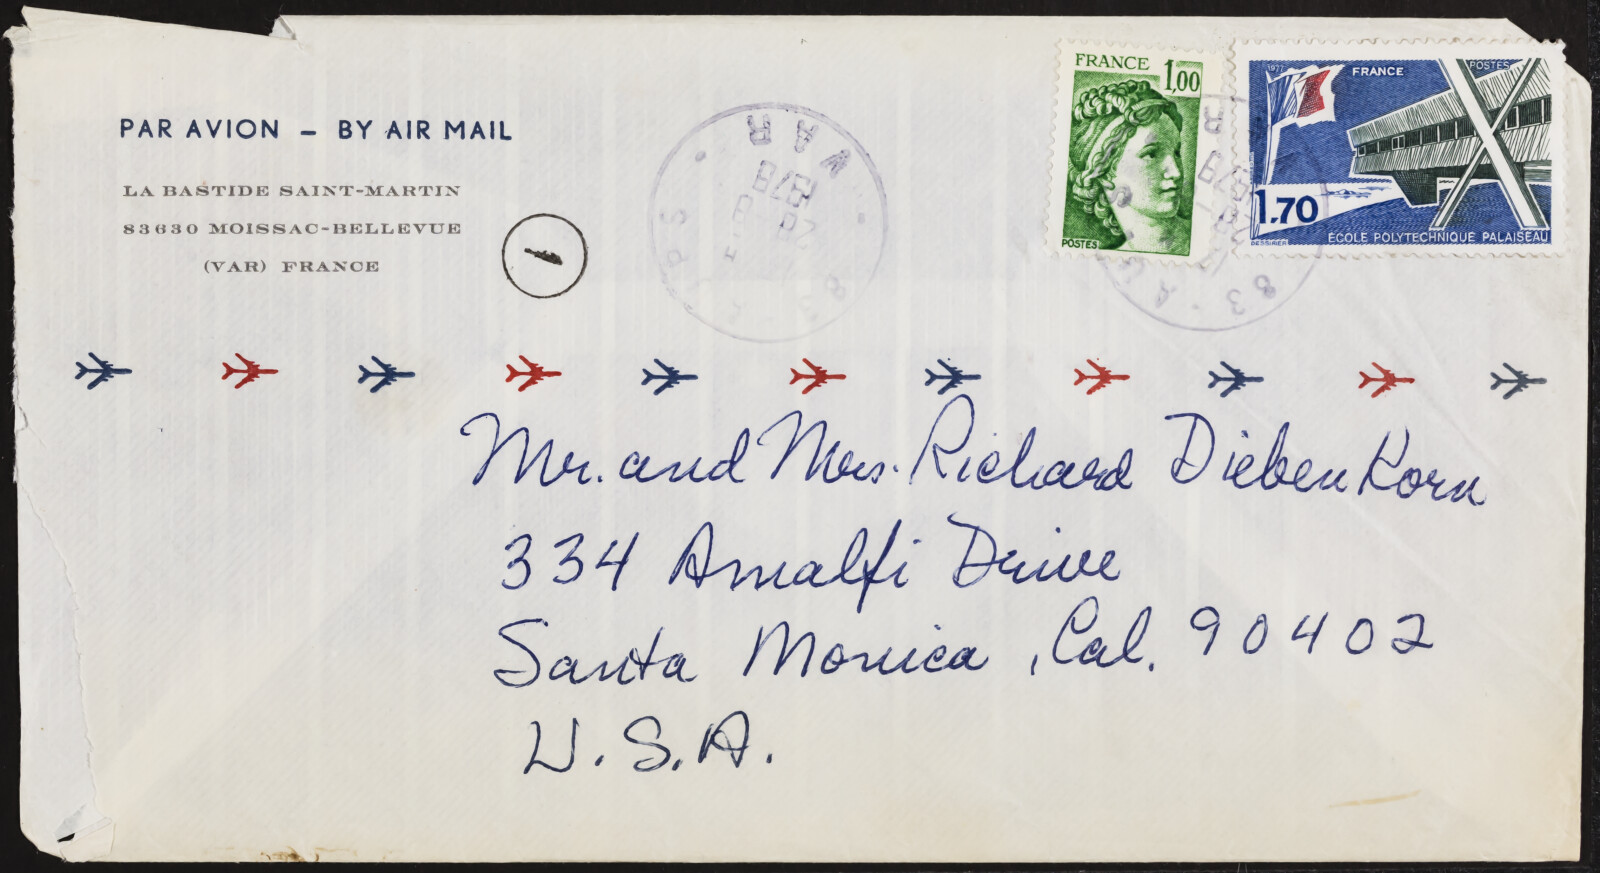 PAR AVION – BY AIR MAIL
LA BASTIDE SAINT-MARTIN
83630 MOISSAC-BELLEVUE
(VAR) FRANCE
VAR
1978
83
FRANCE 1,00
POSTES
1977
FRANCE
POSTES
1,70
ÉCOLE POLYTECHNIQUE PALAISEAU
83
Mr. and Mrs. Richard DiebenKorn
334 Amalfi Drive
Santa Monica, Cal. 90402
U.S.A.